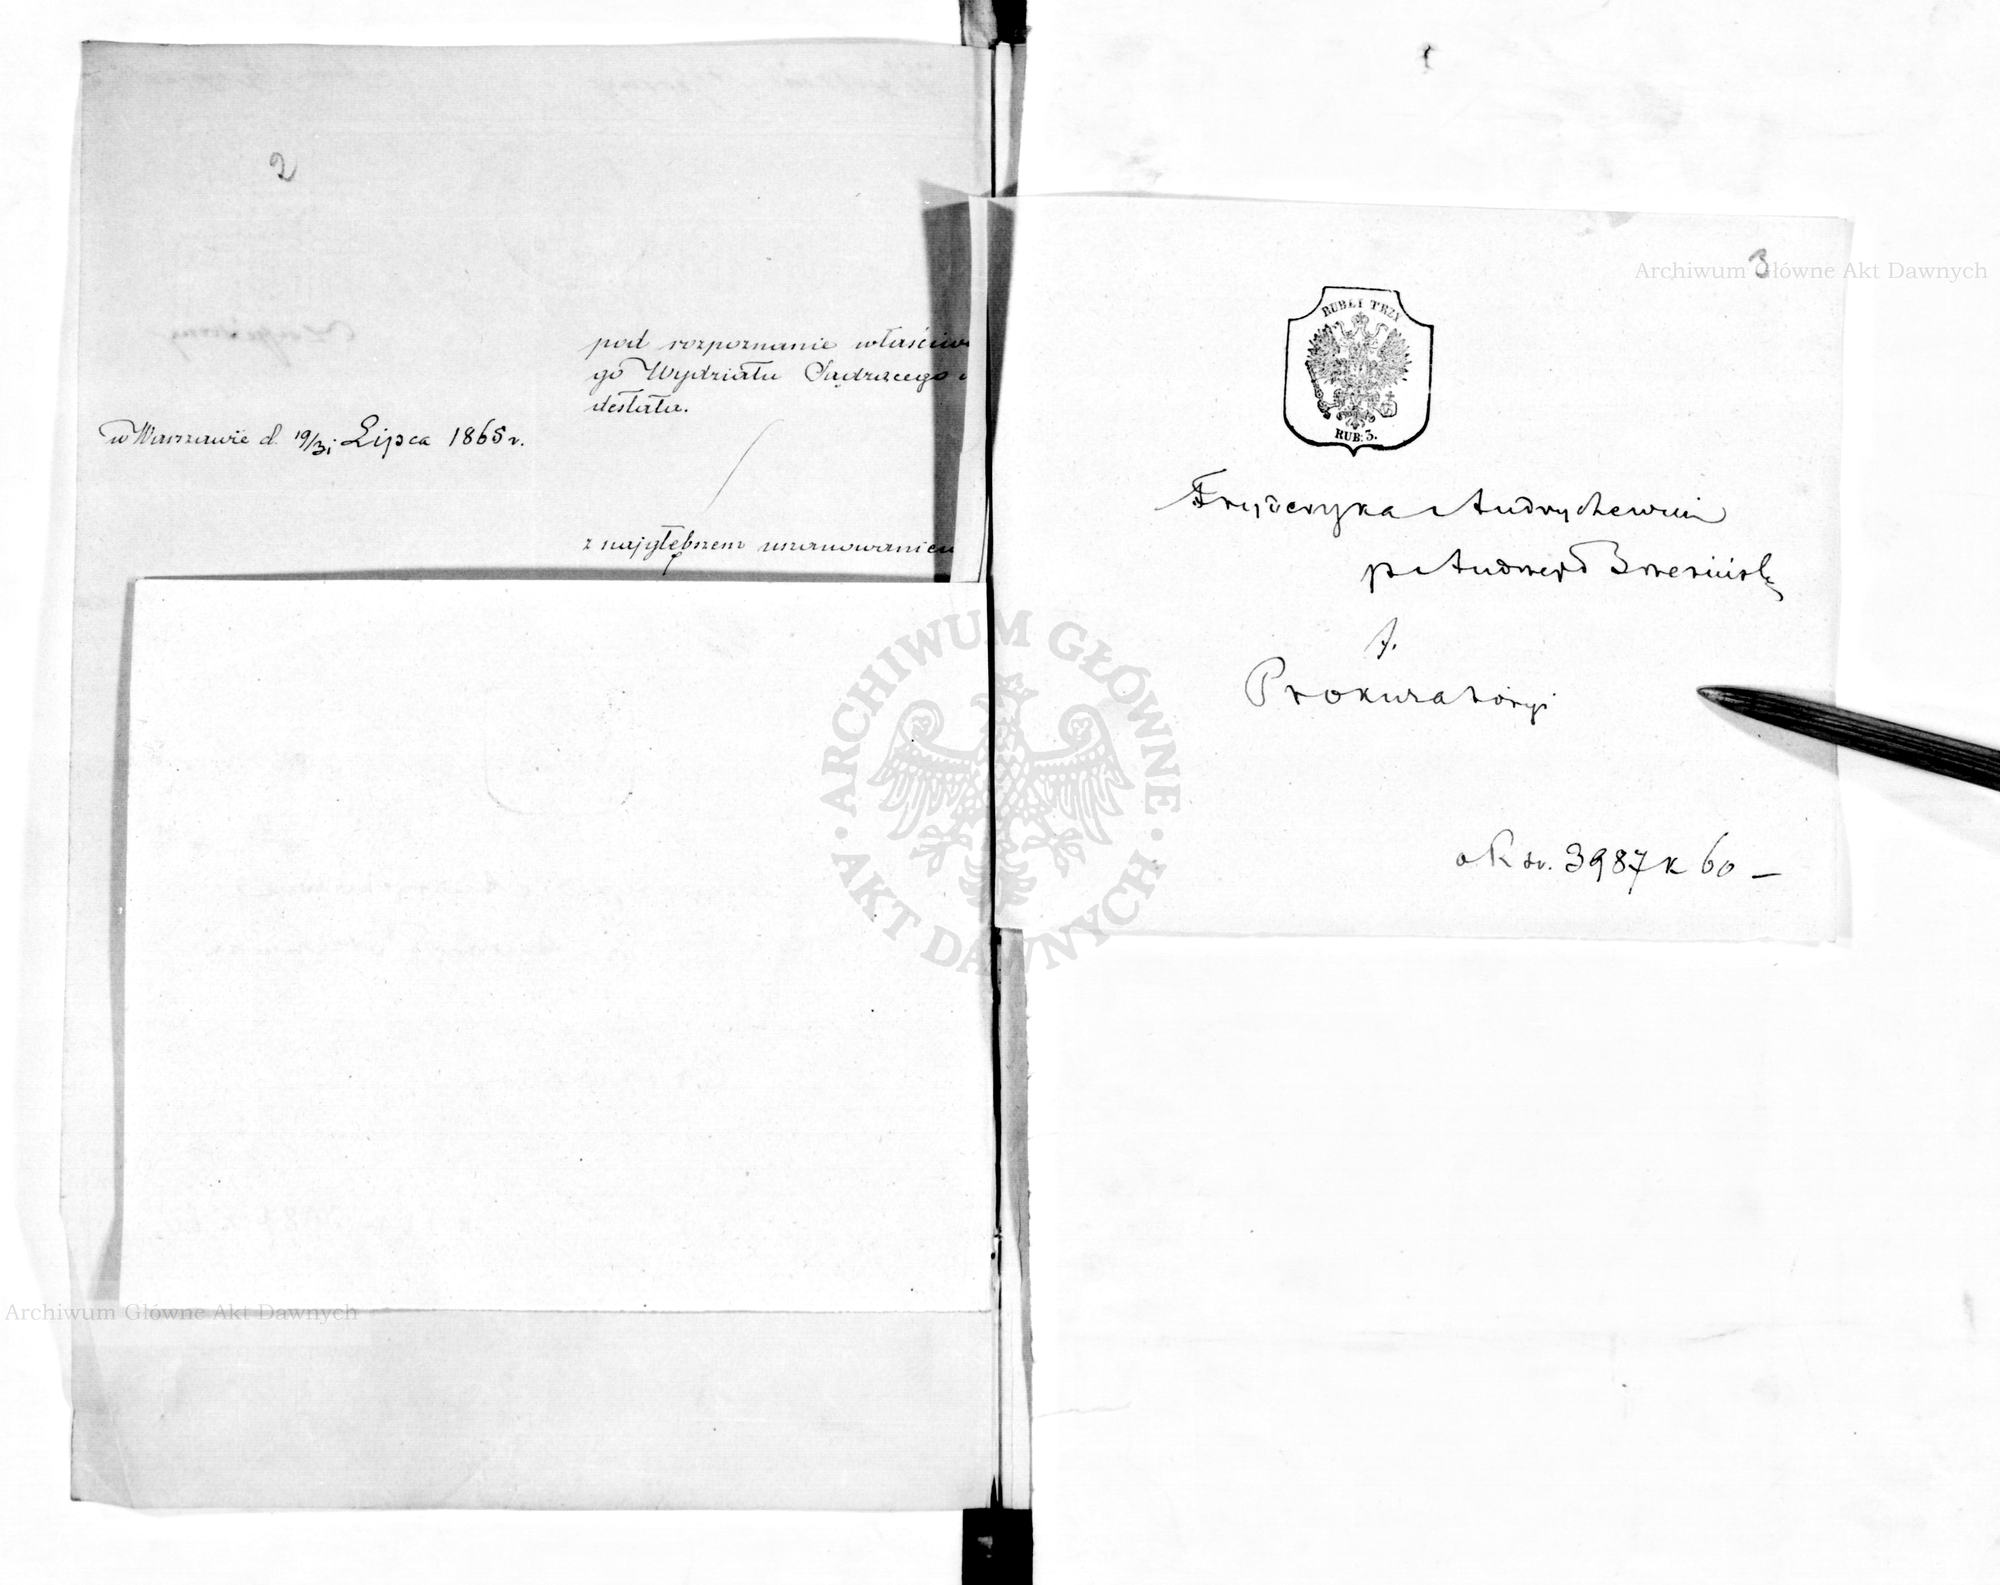 2
pod rozpoznanie właściwe
go Wydziału Sądzącego
destała.
w Warszawie d. 19/31 Lipca 1865 r.
z najgłębszem uszanowaniem
3
Archiwum Główne Akt Dawnych
RUBLI TRZY
RUB: 3.
Fryderyka Andrychewicz
p Andrzej Brzeziński
Prokuratoryi
o R sr. 3987 k 60 —
ARCHIWUM GŁÓWNE
AKT DAWNYCH
Archiwum Główne Akt Dawnych